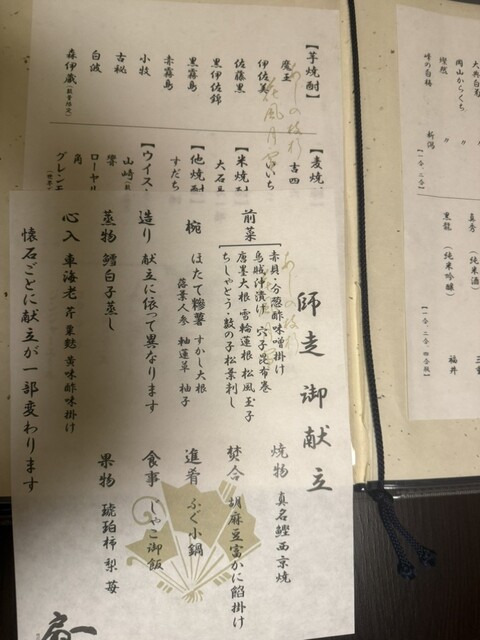 師走 御献立
前菜
赤貝・分葱酢味噌掛け
烏賊沖漬け 穴子昆布巻
唐墨大根 雪輪蓮根 松風 玉子
ちしゃとう・数の子松葉刺し
椀
ほたて糝薯 すかし大根
落葉人参 軸蓮草 柚子
造り 献立に依って異なります
蒸物 鱈白子蒸し
心入 車海老 芹 栗麩 黄味酢味掛け
焼物 真名鰹西京焼
焚合 胡麻豆富かに餡掛け
進肴 ふく小鍋
食事 じゃこ御飯
果物 琥珀柿 梨 苺
懐石ごとに献立が一部変わります
【芋焼酎】
魔王
伊佐美
佐藤黒
黒伊佐錦
黒霧島
赤霧島
小牧
古秘
白波
森伊蔵(数量限定)
【麦焼
吉四
いいち
【米焼酎
大石
【他焼酎
すだち
【ウイス
山崎
響
ローヤル
角
グレンモ
大典白菊
岡山からくち 〃
燦然 〃
峰の白梅 新潟
【一合、二合】
真秀 (純米酒)
黒龍 (純米吟醸) 福井
【一合、二合、四合瓶】